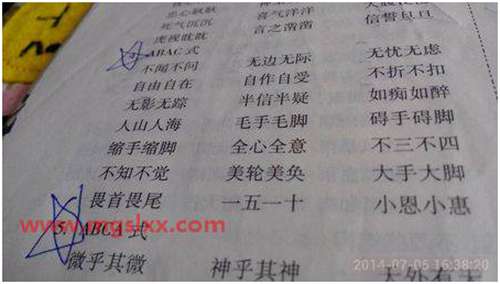 忠心耿耿
死气沉沉 喜气洋洋
虎视眈眈 言之凿凿 信誓旦旦
ABAC式
不闻不问 无边无际 无忧无虑
自由自在 自作自受 不折不扣
无影无踪 半信半疑 如痴如醉
人山人海 毛手毛脚 碍手碍脚
缩手缩脚 全心全意 不三不四
不知不觉 美轮美奂 大手大脚
畏首畏尾 一五一十 小恩小惠
www.mgslxx.com
ABC 式
微乎其微 神乎其神 天外有天
2014-07-05 16:38:20